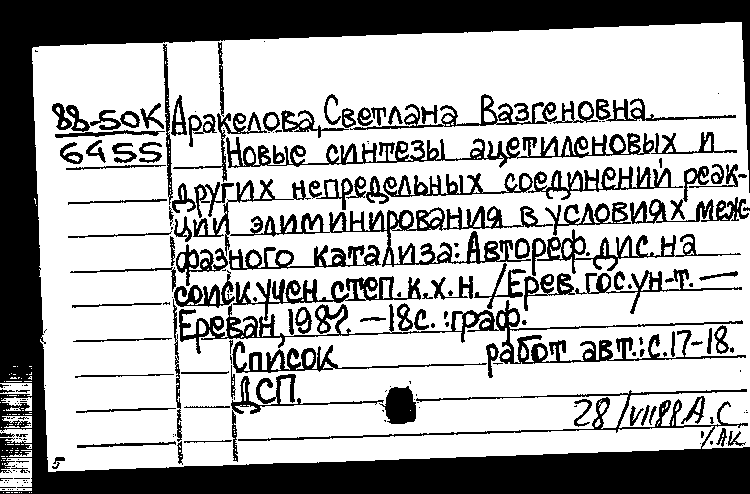 88-50К Аракелова, Светлана Вазгеновна.
6455 Новые синтезы ацетиленовых и
других непредельных соединений реак-
ции элиминирования в условиях меж-
фазного катализа: Автореф. дис. на
соиск. учен. степ. к. х. н. /Ерев. гос. ун-т. —
Ереван, 1987. — 18с. : граф.
Список работ авт.: с. 17-18.
ДСП.
28/VII88 А. С
5